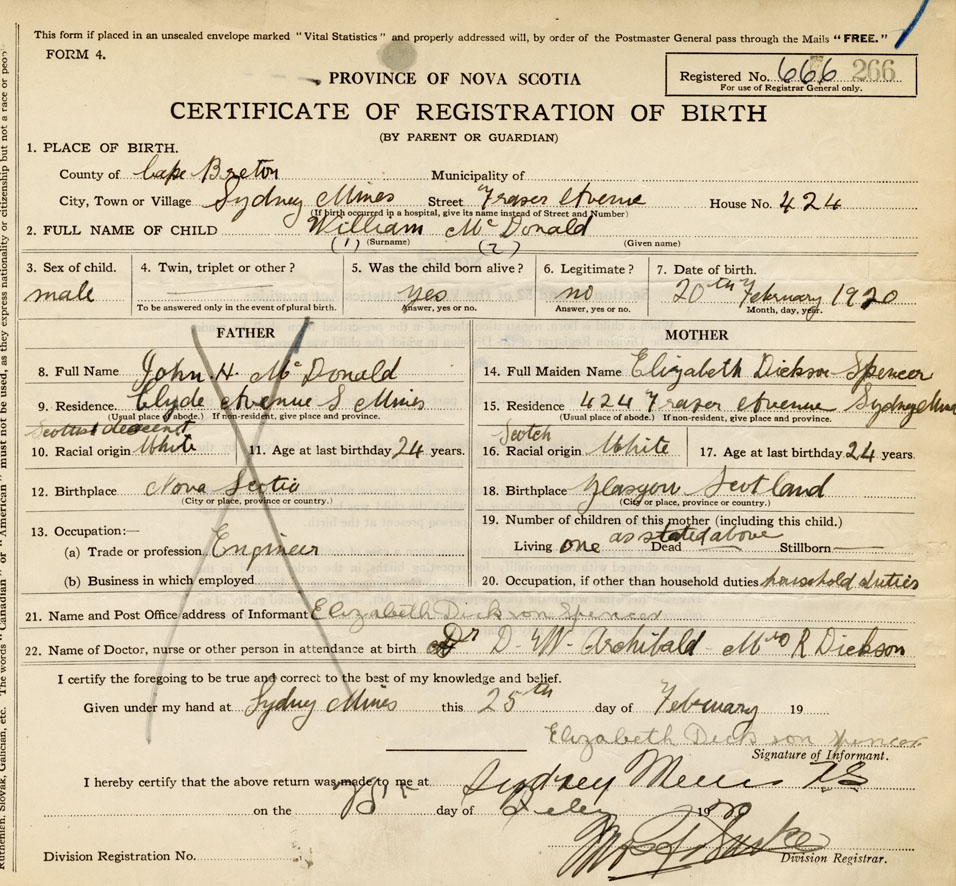 This form if placed in an unsealed envelope marked "Vital Statistics" and properly addressed will, by order of the Postmaster General pass through the Mails "FREE."
FORM 4.
PROVINCE OF NOVA SCOTIA
Registered No. 666 266
For use of Registrar General only.
CERTIFICATE OF REGISTRATION OF BIRTH
(BY PARENT OR GUARDIAN)
1. PLACE OF BIRTH.
County of Cape Breton Municipality of
City, Town or Village Sydney Mines Street Fraser Avenue House No. 424
(If birth occurred in a hospital, give its name instead of Street and Number)
2. FULL NAME OF CHILD William McDonald
(1) (Surname) (2) (Given name)
3. Sex of child. 4. Twin, triplet or other? 5. Was the child born alive? 6. Legitimate? 7. Date of birth.
male yes no 20th February 1920
To be answered only in the event of plural birth. Answer, yes or no. Answer, yes or no. Month, day, year.
FATHER
8. Full Name John H. McDonald
9. Residence Clyde Avenue S Mines
(Usual place of abode.) If non-resident, give place and province.
Scottish descent
10. Racial origin White 11. Age at last birthday 24 years.
12. Birthplace Nova Scotia
(City or place, province or country.)
13. Occupation:—
(a) Trade or profession Engineer
(b) Business in which employed
MOTHER
14. Full Maiden Name Elizabeth Dickson Spencer
15. Residence 424 Fraser Avenue Sydney Mines
(Usual place of abode.) If non-resident, give place and province.
Scotch
16. Racial origin White 17. Age at last birthday 24 years.
18. Birthplace Glasgow Scotland
(City or place, province or country.)
19. Number of children of this mother (including this child.)
as stated above
Living one Dead Stillborn
20. Occupation, if other than household duties household duties
21. Name and Post Office address of Informant Elizabeth Dickson Spencer
22. Name of Doctor, nurse or other person in attendance at birth Dr D. W. Archibald Mrs R Dickson
I certify the foregoing to be true and correct to the best of my knowledge and belief.
Given under my hand at Sydney Mines this 25th day of February 19
Elizabeth Dickson Spencer
Signature of Informant.
I hereby certify that the above return was made to me at Sydney Mines N.S.
on the day of 1920
Division Registration No. Division Registrar.
Ruthenian, Slovak, Galician, etc. The words "Canadian" or "American" must not be used, as they express nationality or citizenship but not a race or